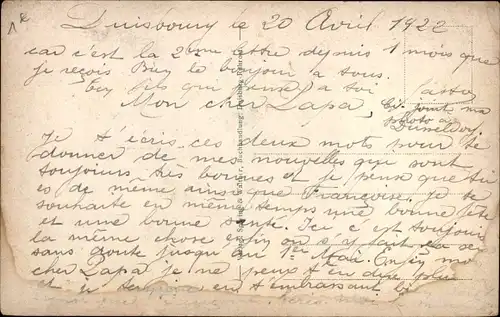 1e
Duisbourg le 20 Avril 1922
car c'est la 2eme lettre depuis 1 mois que
je reçois Bien le bonjour a tous.
Ton fils qui pense a toi
Mon cher Papa,
Ci joint ma
photo a
Dusseldorf
Je t'écris ces deux mots pour te
donner de mes nouvelles qui sont
toujours très bonnes et je pense que tu
es de même ainsi que Françoise. Je te
souhaite en même temps une bonne fête
et une bonne santé. Ici c'est toujours
la même chose
sans doute jusqu'au 1er Mai. Enfin mon
cher Papa je ne peux t'en dire plus
et je termine en t'embrassant